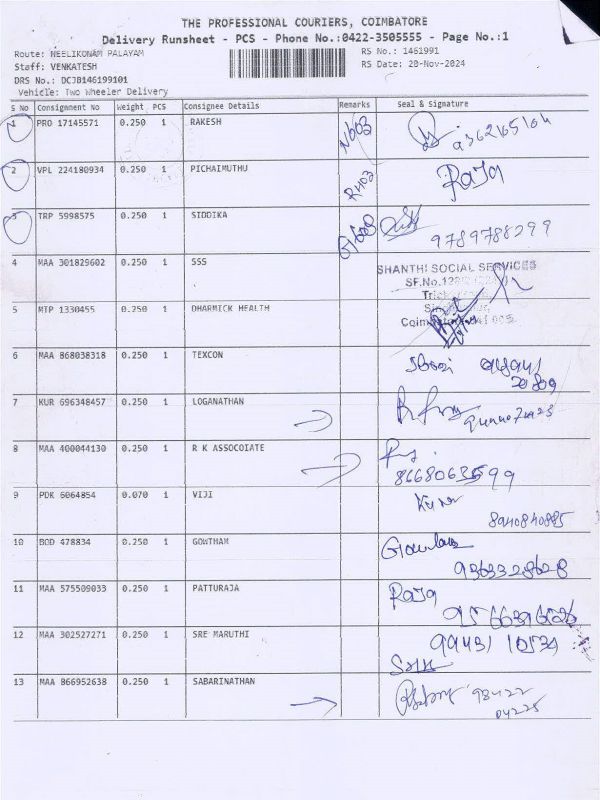 THE PROFESSIONAL COURIERS, COIMBATORE
Delivery Runsheet - PCS - Phone No.:0422-3505555 - Page No.:1
Route: NEELIKONAM PALAYAM
RS No.: 1461991
Staff: VENKATESH
RS Date: 20-Nov-2024
DRS No.: DCJB146199101
Vehicle: Two Wheeler Delivery
S No Consignment No Weight PCS Consignee Details Remarks Seal & Signature
1 PRO 17145571 0.250 1 RAKESH
2 VPL 224180934 0.250 1 PICHAIMUTHU RH03 Raja
3 TRP 5998575 0.250 1 SIDDIKA 9789788299
4 MAA 301829602 0.250 1 SSS SHANTHI SOCIAL SERVICES
5 MTP 1330455 0.250 1 DHARMICK HEALTH
6 MAA 868038318 0.250 1 TEXCON
7 KUR 696348457 0.250 1 LOGANATHAN
8 MAA 400044130 0.250 1 R K ASSOCOIATE
9 PDK 6064854 0.070 1 VIJI 8940840885
10 BOD 478834 0.250 1 GOWTHAM
11 MAA 575509033 0.250 1 PATTURAJA Raja
12 MAA 302527271 0.250 1 SRE MARUTHI 99431 10534
13 MAA 866952638 0.250 1 SABARINATHAN